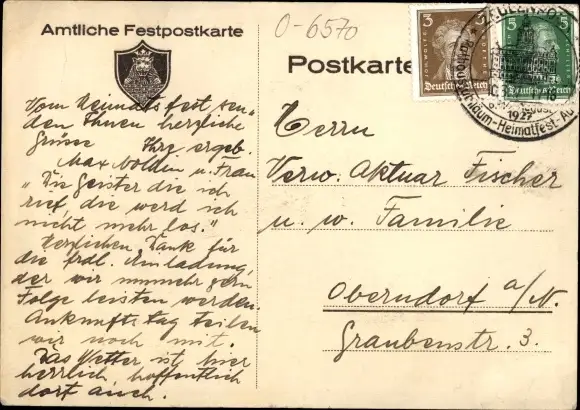 O-6570
Amtliche Festpostkarte
Postkarte
3
5
Deutsches Reich
Deutsches Reich
ZEULENRODA
1927
Rathaus-Jubiläum-Heimatfest-Au
Vom Heimatfest sen"
den Ihnen herzliche
Grüsse Ihre ergeb.
Max Wolden u. Frau
"Die Geister die ich
rief, die werd ich
nicht mehr los."
Herzlichen Dank für
die frdl. Einladung,
der wir nunmehr gern
Folge leisten werden.
Ankunftstag teilen
wir noch mit.
Das Wetter ist hier
herrlich, hoffentlich
dort auch.
Herrn
Verw. Aktuar Fischer
u. w. Familie
Oberndorf a/N.
Graubenstr. 3.